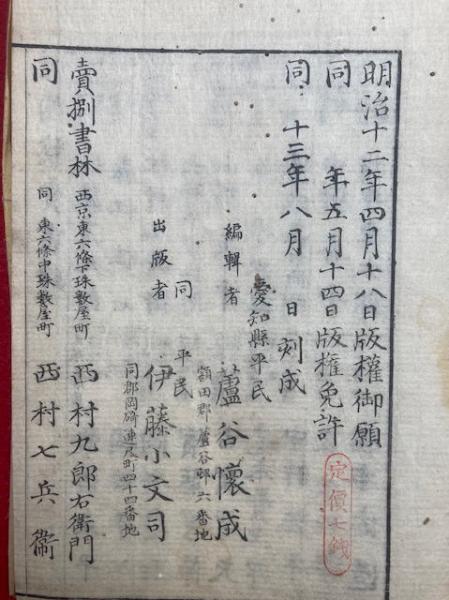 明治十二年四月十八日版權御願
同　年五月十四日版權免許
同　十三年八月　日刻成
定價七錢
愛知縣平民
編輯者　蘆谷懷成
額田郡蘆谷邨六番地
同　平民
出版者　伊藤小文司
同郡岡崎連尺町四十四番地
賣捌書林　西京東六條下珠數屋町　西村九郎右衛門
同　同　東六條中珠數屋町　西村七兵衞